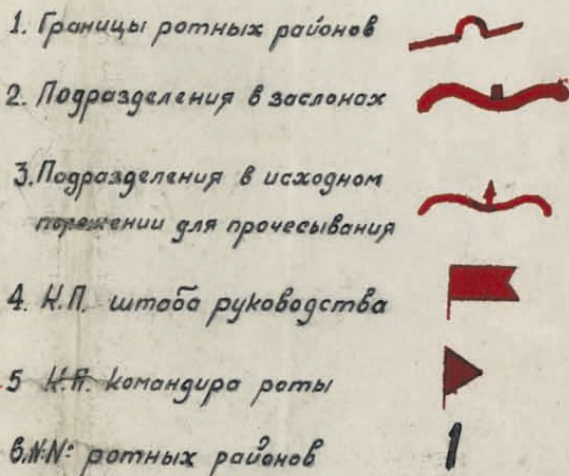 1. Границы ротных районов
2. Подразделения в заслонах
3. Подразделения в исходном
положении для прочесывания
4. К.П. штаба руководства
5 К.П. командира роты
6. №№: ротных районов 1